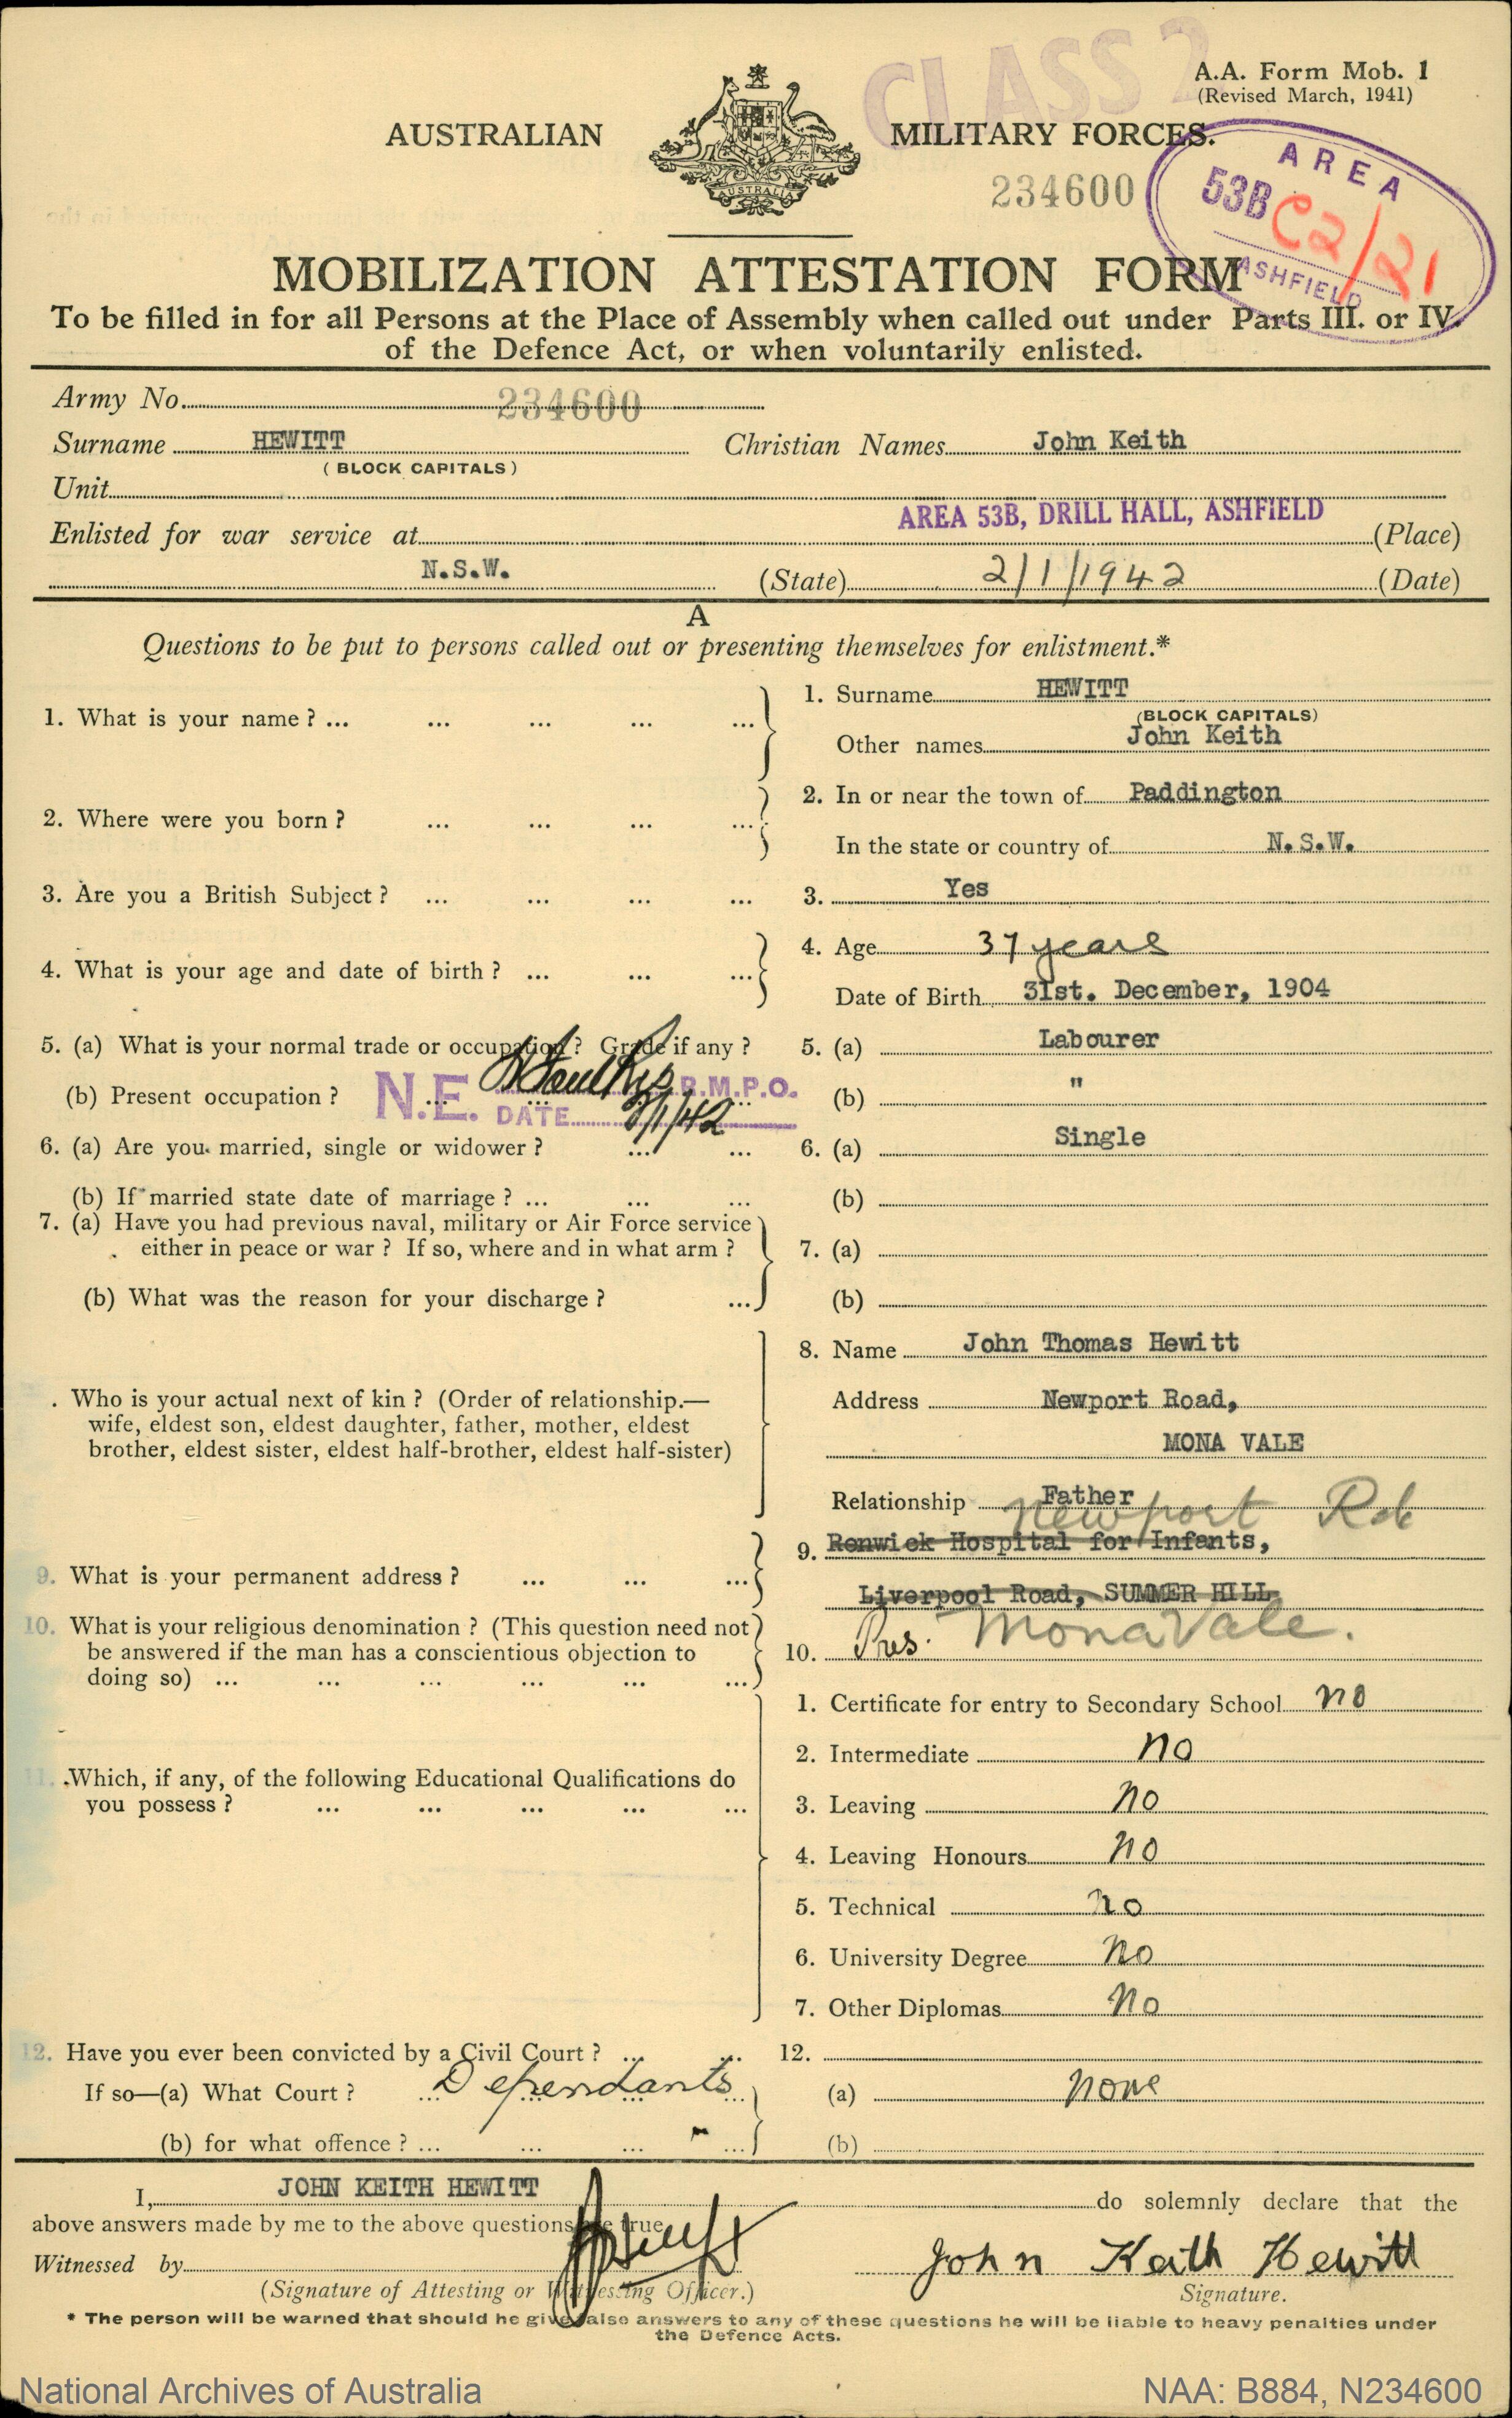 CLASS 2
A.A. Form Mob. 1
(Revised March, 1941)
AUSTRALIAN MILITARY FORCES.
AUSTRALIA
234600
AREA
53B
C2/21
ASHFIELD
MOBILIZATION ATTESTATION FORM
To be filled in for all Persons at the Place of Assembly when called out under Parts III. or IV.
of the Defence Act, or when voluntarily enlisted.
Army No. 234600
Surname HEWITT Christian Names John Keith
(BLOCK CAPITALS)
Unit
AREA 53B, DRILL HALL, ASHFIELD
Enlisted for war service at (Place)
N.S.W. (State) 2/1/1942 (Date)
A
Questions to be put to persons called out or presenting themselves for enlistment.*
1. What is your name? ... ... ... ... ...
1. Surname HEWITT
(BLOCK CAPITALS)
Other names John Keith
2. Where were you born? ... ... ... ...
2. In or near the town of Paddington
In the state or country of N.S.W.
3. Are you a British Subject? ... ... ... ...
3. Yes
4. What is your age and date of birth? ... ... ...
4. Age 37 years
Date of Birth 31st. December, 1904
5. (a) What is your normal trade or occupation? Grade if any?
5. (a) Labourer
(b) Present occupation? ... ... ...
(b) "
N.E. R.M.P.O.
DATE 2/1/42
6. (a) Are you married, single or widower? ... ...
6. (a) Single
(b) If married state date of marriage? ... ... ...
(b)
7. (a) Have you had previous naval, military or Air Force service
either in peace or war? If so, where and in what arm?
7. (a)
(b) What was the reason for your discharge? ...
(b)
. Who is your actual next of kin? (Order of relationship.—
wife, eldest son, eldest daughter, father, mother, eldest
brother, eldest sister, eldest half-brother, eldest half-sister)
8. Name John Thomas Hewitt
Address Newport Road,
MONA VALE
Relationship Father
9. What is your permanent address? ... ... ...
Newport Rd
9. Renwick Hospital for Infants,
Liverpool Road, SUMMER HILL
Mona Vale.
10. What is your religious denomination? (This question need not
be answered if the man has a conscientious objection to
doing so) ... ... ... ... ... ...
10. Pres.
11. Which, if any, of the following Educational Qualifications do
you possess? ... ... ... ... ...
1. Certificate for entry to Secondary School no
2. Intermediate no
3. Leaving no
4. Leaving Honours no
5. Technical no
6. University Degree no
7. Other Diplomas no
12. Have you ever been convicted by a Civil Court? ... ...
12.
If so—(a) What Court? ... Dependants
(a) none
(b) for what offence? ... ... ... ...
(b)
I, JOHN KEITH HEWITT do solemnly declare that the
above answers made by me to the above questions are true.
Witnessed by John Keith Hewitt
(Signature of Attesting or Witnessing Officer.) Signature.
* The person will be warned that should he give false answers to any of these questions he will be liable to heavy penalties under
the Defence Acts.
National Archives of Australia NAA: B884, N234600